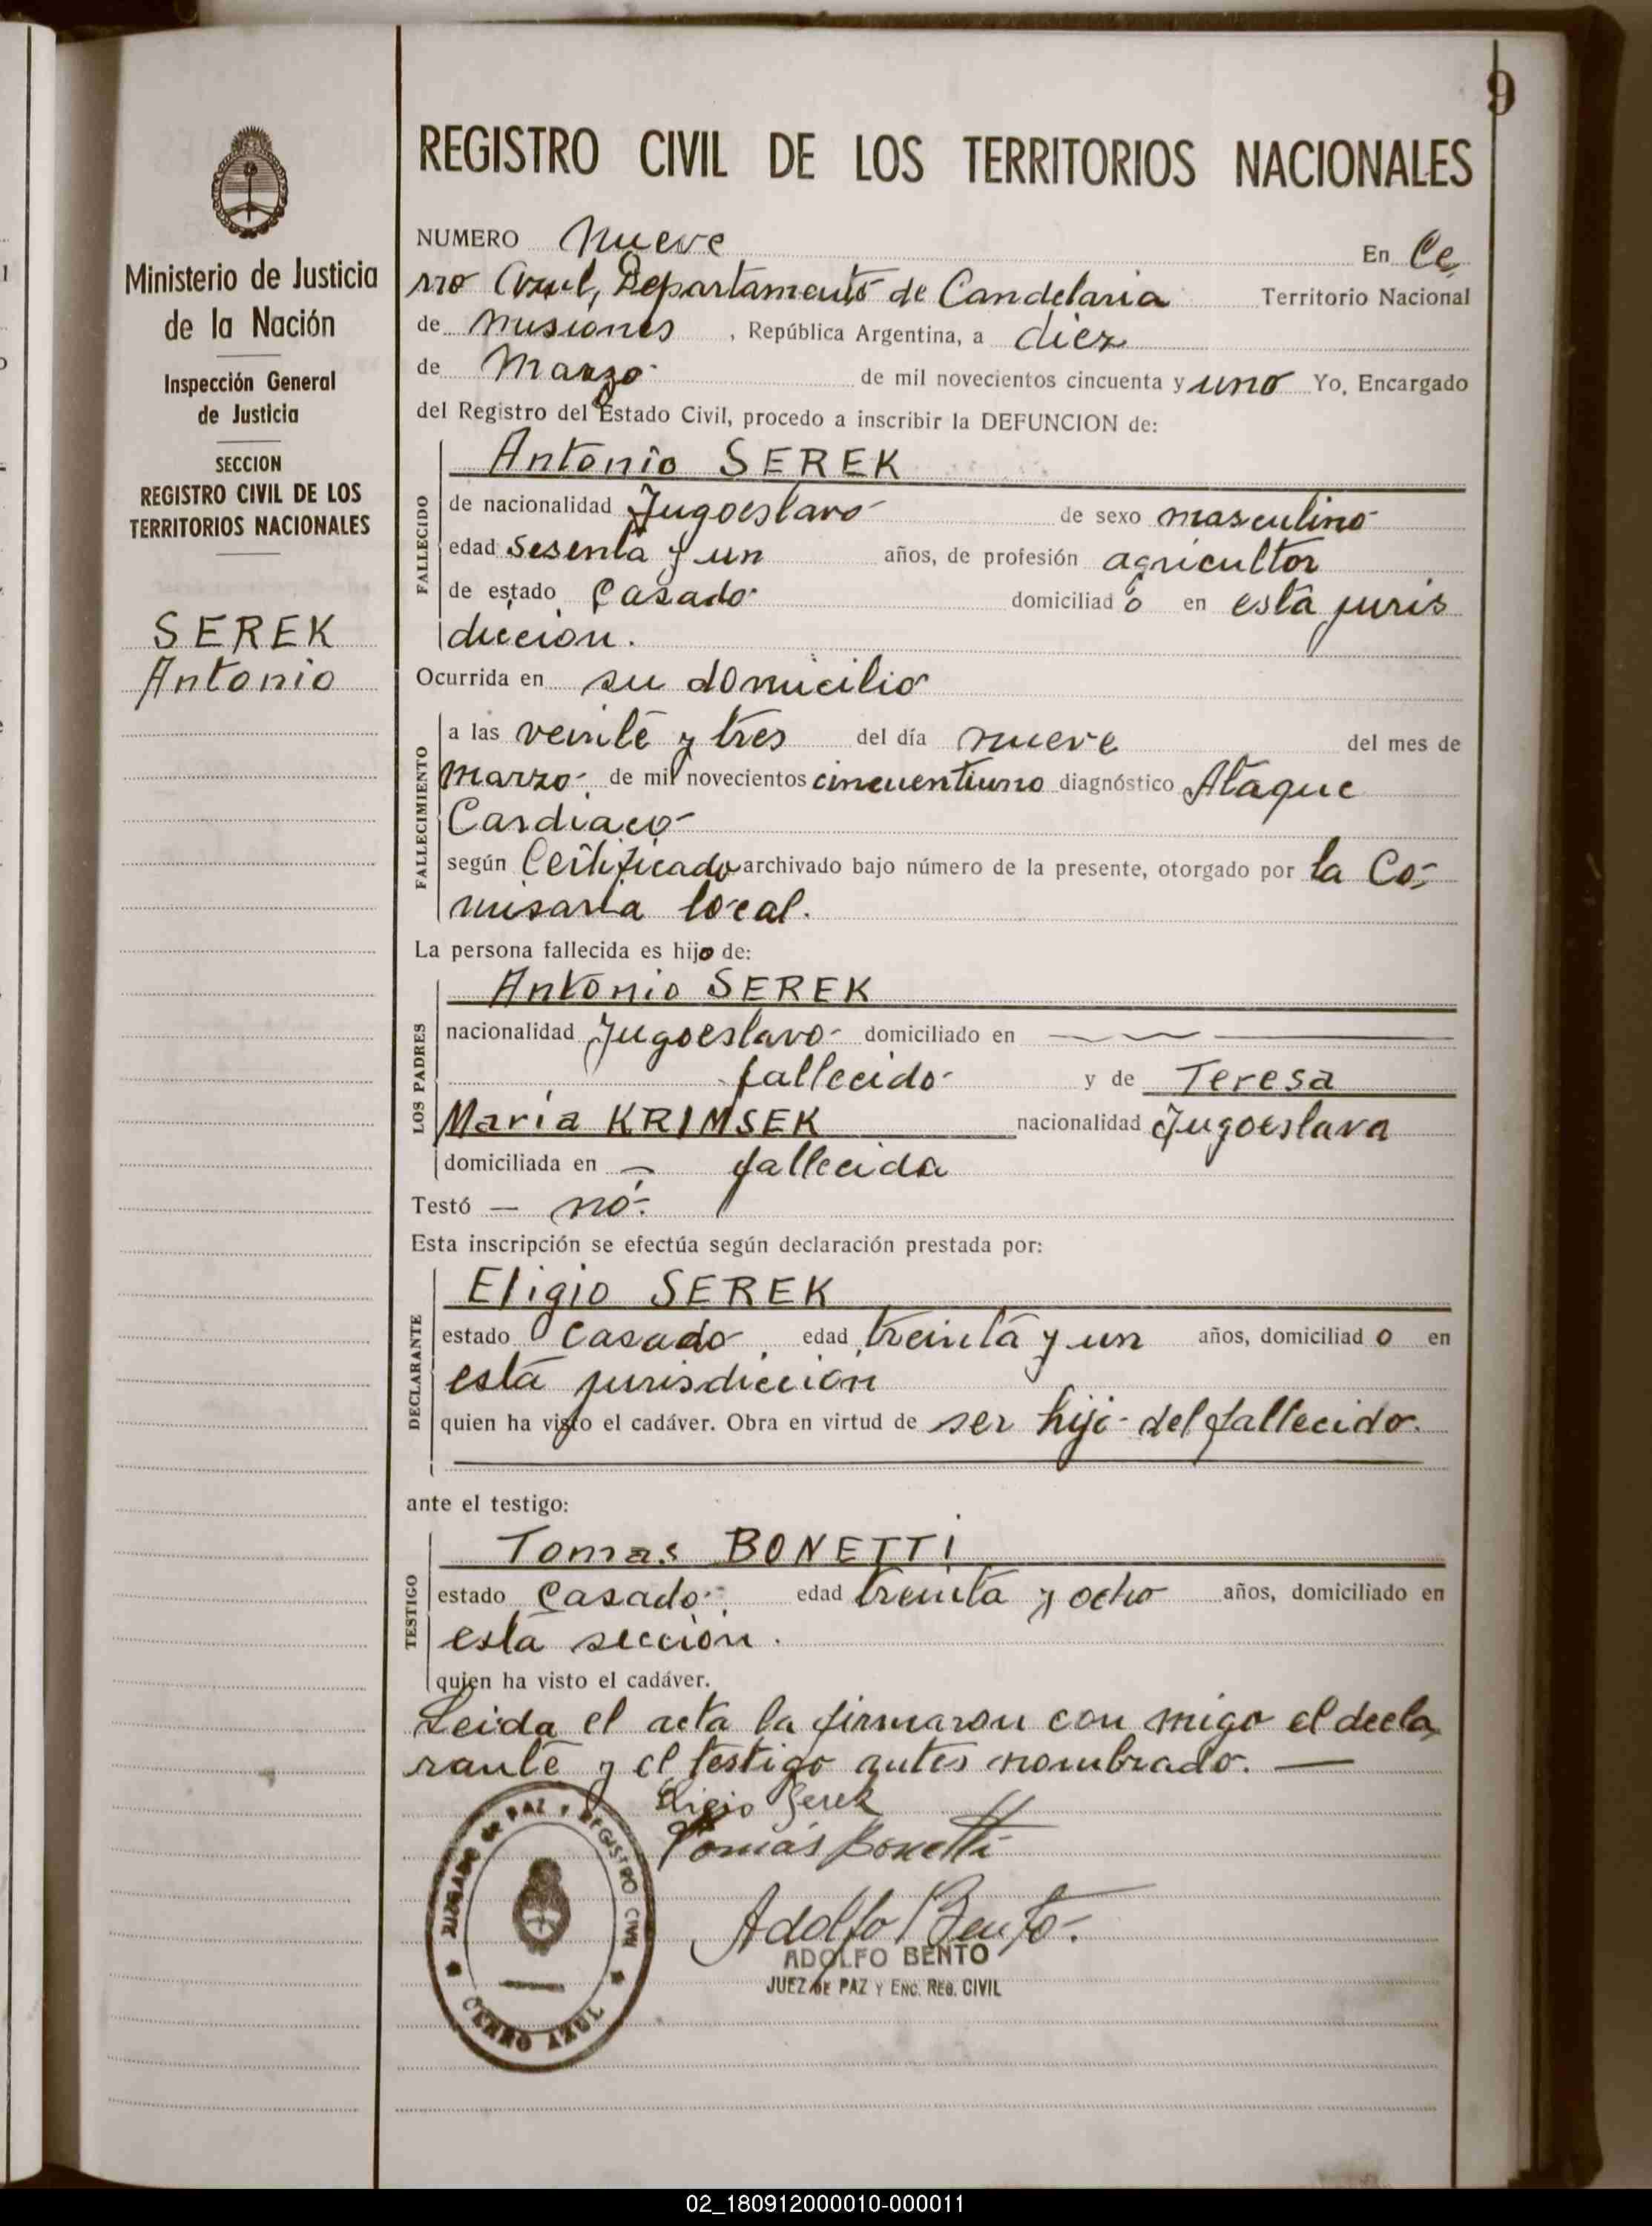 9
REGISTRO CIVIL DE LOS TERRITORIOS NACIONALES
Ministerio de Justicia
de la Nación
Inspección General
de Justicia
SECCION
REGISTRO CIVIL DE LOS
TERRITORIOS NACIONALES
SEREK
Antonio
NUMERO Nueve En Ce
rro Azul, Departamento de Candelaria Territorio Nacional
de Misiones, República Argentina, a diez
de Marzo de mil novecientos cincuenta y uno Yo, Encargado
del Registro del Estado Civil, procedo a inscribir la DEFUNCION de:
Antonio SEREK
FALLECIDO
de nacionalidad Jugoeslavo de sexo masculino
edad Sesenta y un años, de profesión agricultor
de estado Casado domiciliado en esta juris
dicción.
Ocurrida en su domicilio
FALLECIMIENTO
a las veinte y tres del día nueve del mes de
marzo de mil novecientos cincuentiuno diagnóstico Ataque
Cardiaco
según Certificado archivado bajo número de la presente, otorgado por la Co-
misaria local.
La persona fallecida es hijo de:
LOS PADRES
Antonio SEREK
nacionalidad Jugoeslavo domiciliado en
fallecido y de Teresa
Maria KRIMSEK nacionalidad Jugoeslava
domiciliada en — fallecida
Testó — nó.
Esta inscripción se efectúa según declaración prestada por:
DECLARANTE
Eligio SEREK
estado Casado edad treinta y un años, domiciliado en
esta jurisdicción
quien ha visto el cadáver. Obra en virtud de ser hijo del fallecido.
ante el testigo:
TESTIGO
Tomas BONETTI
estado Casado edad treinta y ocho años, domiciliado en
esta sección.
quien ha visto el cadáver.
Leida el acta la firmaron con migo el decla
rante y el testigo antes nombrado. —
Eligio Serek
Tomás Bonetti
Adolfo Bento
ADOLFO BENTO
JUEZ DE PAZ Y ENC. REG. CIVIL
JUZGADO DE PAZ Y REGISTRO CIVIL
CERRO AZUL
02_180912000010-000011